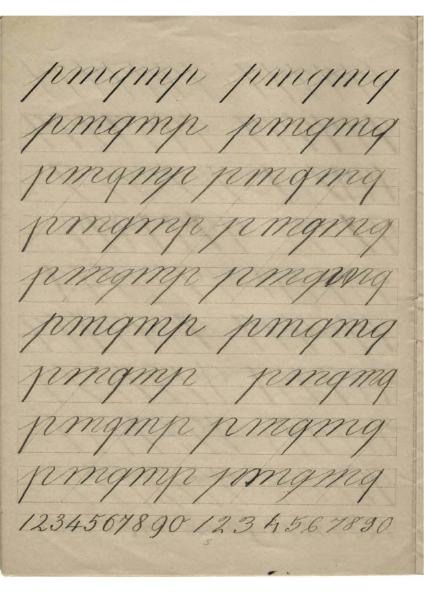 pmqmp pmqmq
pmqmp pmqmq
pmqmp pmqmq
pmqmp pmqmq
pmqmp pmqmq
pmqmp pmqmq
pmqmp pmqmq
pmqmp pmqmq
pmqmp pmqmq
1234567890 1234567890